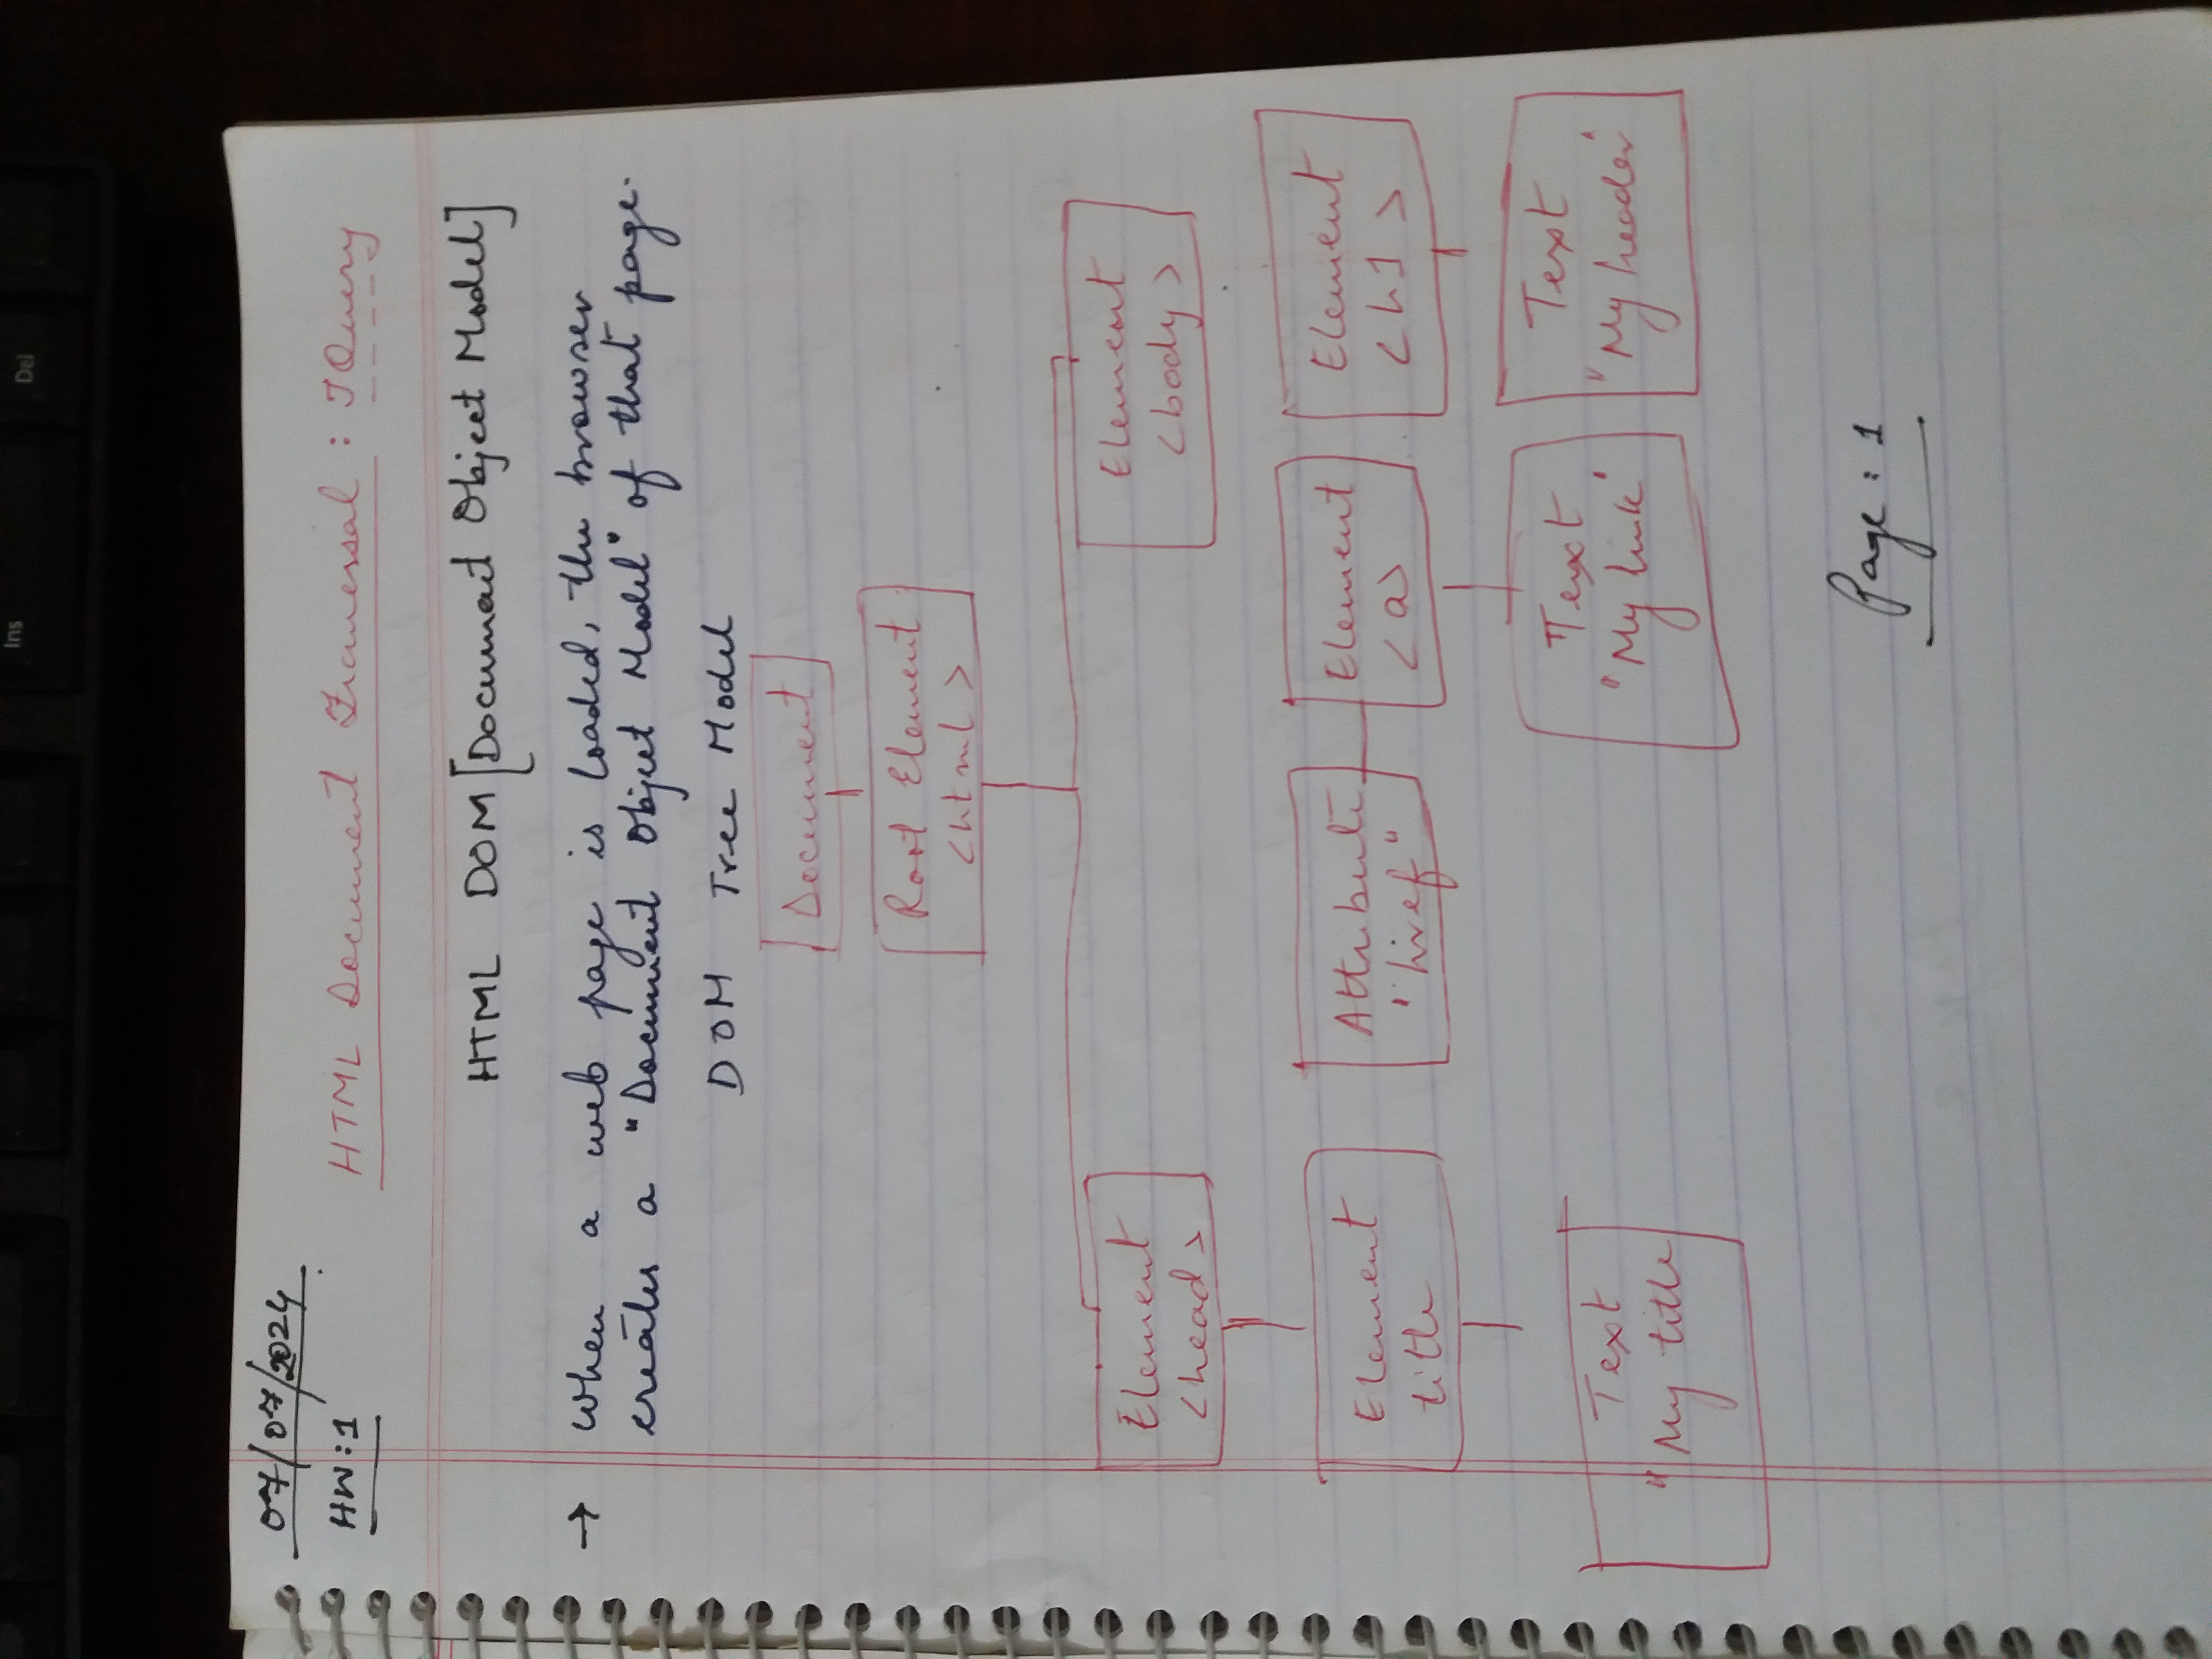 Ins
Del
07/07/2024
HW:1
HTML Document Traversal : JQuery
HTML DOM [Document Object Model]
→ When a web page is loaded, the browser
creates a "Document Object Model" of that page.
DOM Tree Model
Document
Root Element
<html>
Element
<head>
Element
<body>
Element
title
Attribute
"href"
Element
<a>
Element
<h1>
Text
"My title
Text
"My link"
Text
"My header"
Page : 1